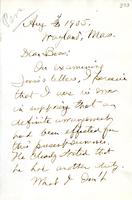 Aug 3, 1905.
Wayland, Mass.
Dear Bern:
On examining
Jim's letters, I perceive
that I was in error
in supposing that a
definite arrangement
had been effected for
this present summer.
He clearly stated that
he had another duty.
What I don't